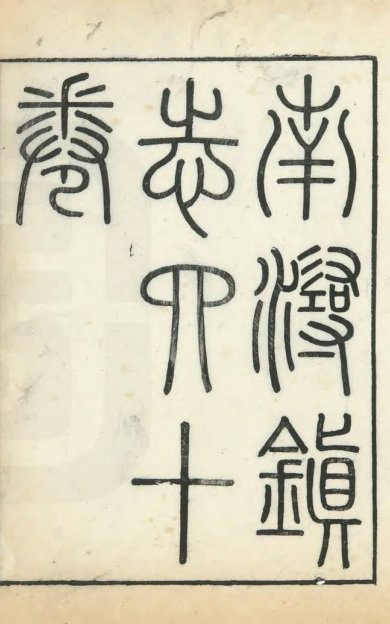 南潯鎮
志四十
卷